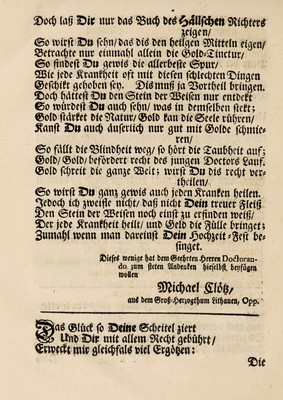 Doch laß Dir nur das Buch des Hällschen Richters
zeigen/
So wirst Du sehn/ das dis den heilgen Mitteln eigen/
Betrachte nur einmahl allein die Gold-Tinctur/
So findest Du gewis die allerbeste Spur/
Wie jede Kranckheit oft mit diesen schlechten Dingen
Geschikt gehoben sey. Dis muß ja Vortheil bringen.
Doch hättest Du den Stein der Weisen nur entdekt
So würdest Du auch sehn/ was in demselben stekt;
Gold stärket die Natur/ Gold kan die Seele rühren/
Kanst Du auch äuserlich nur gut mit Golde schmie-
ren/
So fällt die Blindheit weg/ so hört die Taubheit auf;
Gold/ Gold/ befördert recht des jungen Doctors Lauf.
Gold schreit die ganze Welt; wirst Du dis recht ver-
theilen/
So wirst Du ganz gewis auch jeden Kranken heilen.
Jedoch ich zweifle nicht/ daß nicht Dein treuer Fleiß
Den Stein der Weisen noch einst zu erfinden weiß/
Der jede Krankheit heilt/ und Geld die Fülle bringet;
Zumahl wenn man dareinst Dein Hochzeit-Fest be-
singet.
Dieses wenige hat dem Geehrten Herren Doctoran-
do zum steten Andenken hieselbst beyfügen
wollen
Michael Clötz,
aus dem Groß-Herzogthum Lithauen, Opp.
Das Glück so Deine Scheitel ziert
Und Dir mit allem Recht gebührt/
Erweckt mir gleichfals viel Ergötzen:
Die